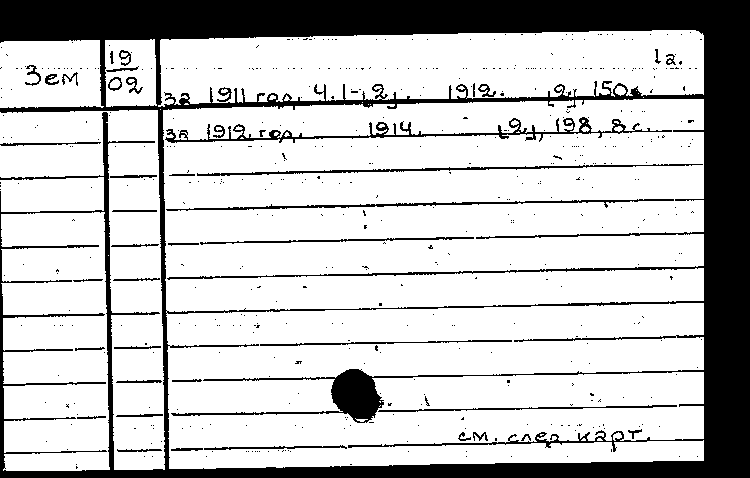 1а.
Зем
19
02
за 1911 год, Ч. 1-[2]. 1912. [2], 150 с.
за 1912 год. 1914. [2], 198, 8 с.
см. след. карт.